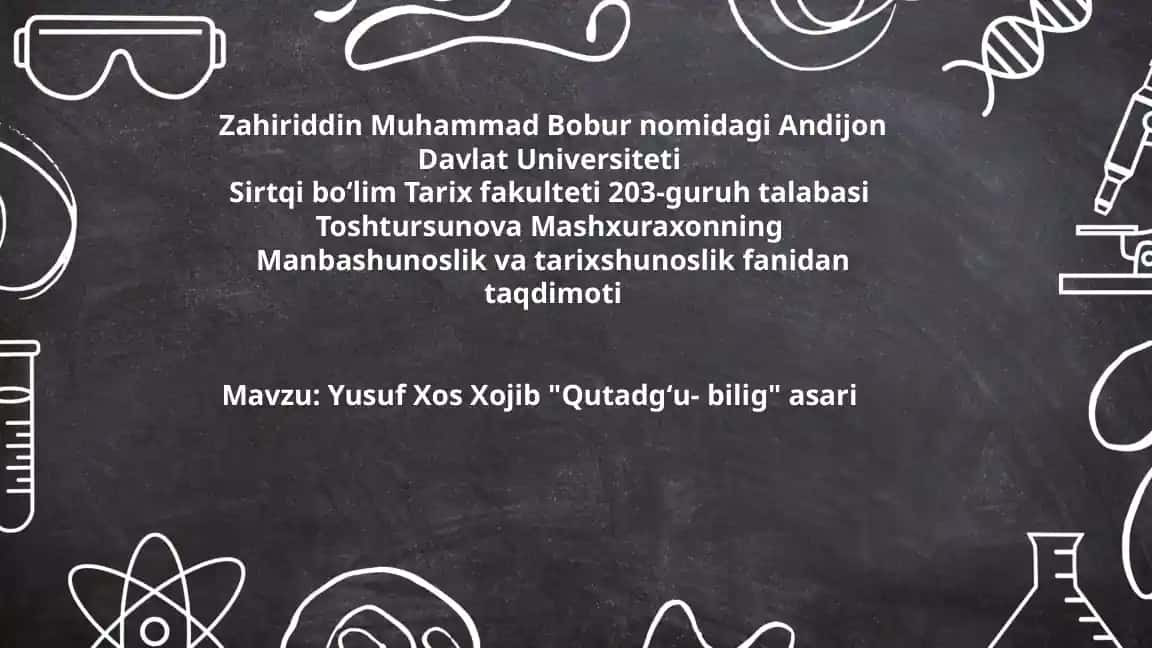 Zahiriddin Muhammad Bobur nomidagi Andijon
Davlat Universiteti
Sirtqi bo‘lim Tarix fakulteti 203-guruh talabasi
Toshtursunova Mashxuraxonning
Manbashunoslik va tarixshunoslik fanidan
taqdimoti
Mavzu: Yusuf Xos Xojib "Qutadg‘u- bilig" asari